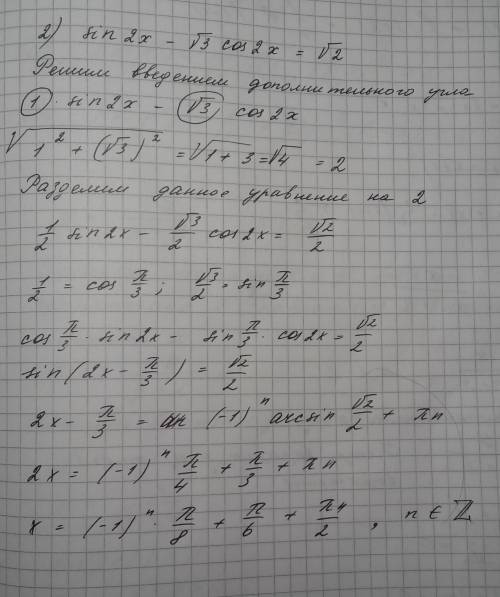 2) sin 2x − √3 cos 2x = √2
Решим введением дополнительного угла
1 · sin 2x − √3 cos 2x
√(1² + (√3)²) = √(1 + 3) = √4 = 2
Разделим данное уравнение на 2
1/2 sin 2x − √3/2 cos 2x = √2/2
1/2 = cos π/3 ; √3/2 = sin π/3
cos π/3 · sin 2x − sin π/3 · cos 2x = √2/2
sin(2x − π/3) = √2/2
2x − π/3 = (−1)ⁿ arcsin √2/2 + πn
2x = (−1)ⁿ π/4 + π/3 + πn
x = (−1)ⁿ · π/8 + π/6 + πn/2 , n ∈ ℤ